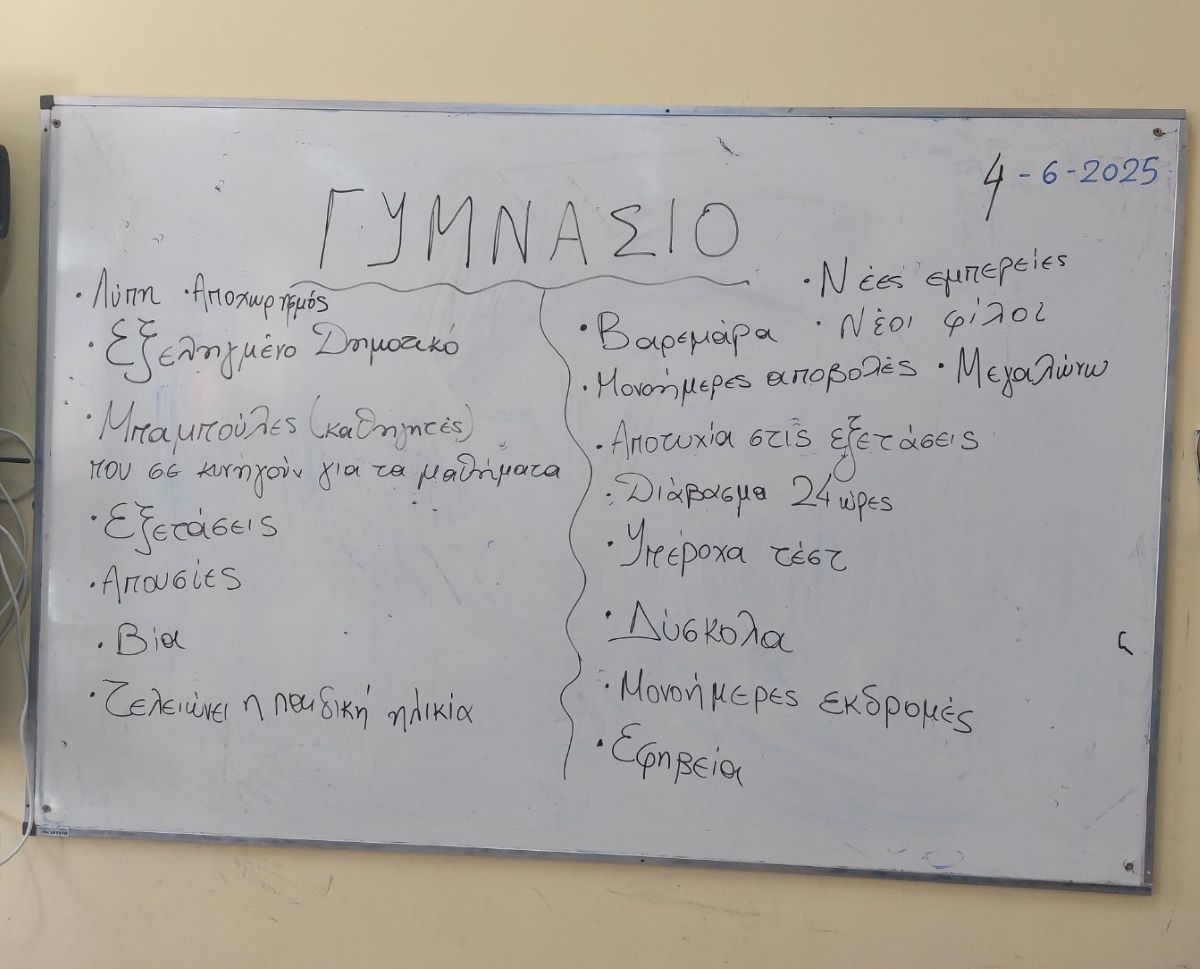 4-6-2025
ΓΥΜΝΑΣΙΟ
· Λύπη · Αποχωρησμός
· Εξεληγμένο Δημοτικό
· Μπαμπούλες (καθηγητές)
που σε κυνηγούν για τα μαθήματα
· Εξετάσεις
· Απουσίες
· Βία
· Τελειώνει η παιδική ηλικία
· Νέες εμπερείες
· Βαρεμάρα · Νέοι φίλοι
· Μονοήμερες αποβολές · Μεγαλώνω
· Αποτυχία στις εξετάσεις
· Διάβασμα 24 ώρες
· Υπέροχα τέστ
· Δύσκολα
· Μονοήμερες εκδρομές
· Εφηβεία